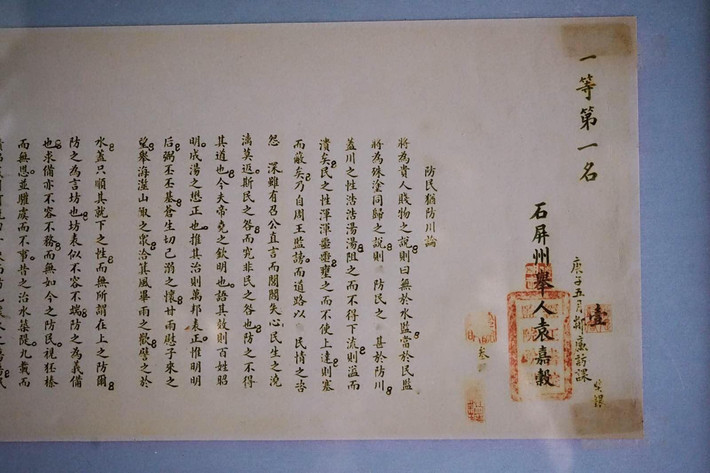 一等第一名
石屏州舉人袁嘉穀
庚子五月
課
壹
防民猶防川論
將為貴人賤物之說則曰無於水監當於民監
將為殊塗同歸之說則防民之甚於防川
蓋川之性浩浩湯湯阻之而不得下流則溢而
潰矣民之性渾渾噩噩壅之而不使上達則塞
而敵矣乃自周王監謗而道路以民情之咨
怨深雖有召公直言而閱閱失心民生之澆
漓莫返斯民之咎而究非民之咎也防之不得
其道也今夫帝堯之欽明也語其效則百姓昭
明成湯之懋正也推其治則萬邦表正惟明明
后弼丕丕基蒼生切己溺之懷甘雨慰子來之
望舉海澨山陬之眾洽箕風畢雨之歡譬之於
水蓋只順其就下之性而無所謂在上之防爾
防之為言坊也坊表似不容不端防之為義備
也求備亦不容不務而無如今之防民視狉榛
而無思並驩虞而不事昔之治水築隄九載而